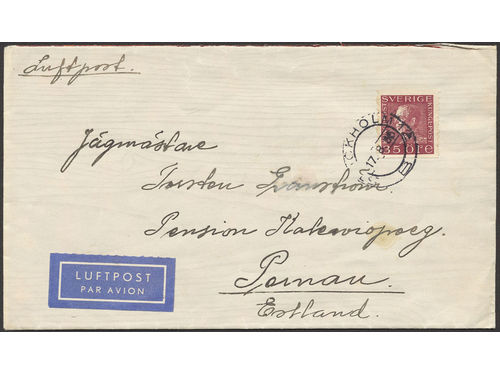 Luftpost.
SVERIGE
35 ÖRE
STOCKHOLM 12
17.8
B
Jägmästare
Torsten
Pension Kalewipoeg.
Pernau.
Estland.
LUFTPOST
PAR AVION